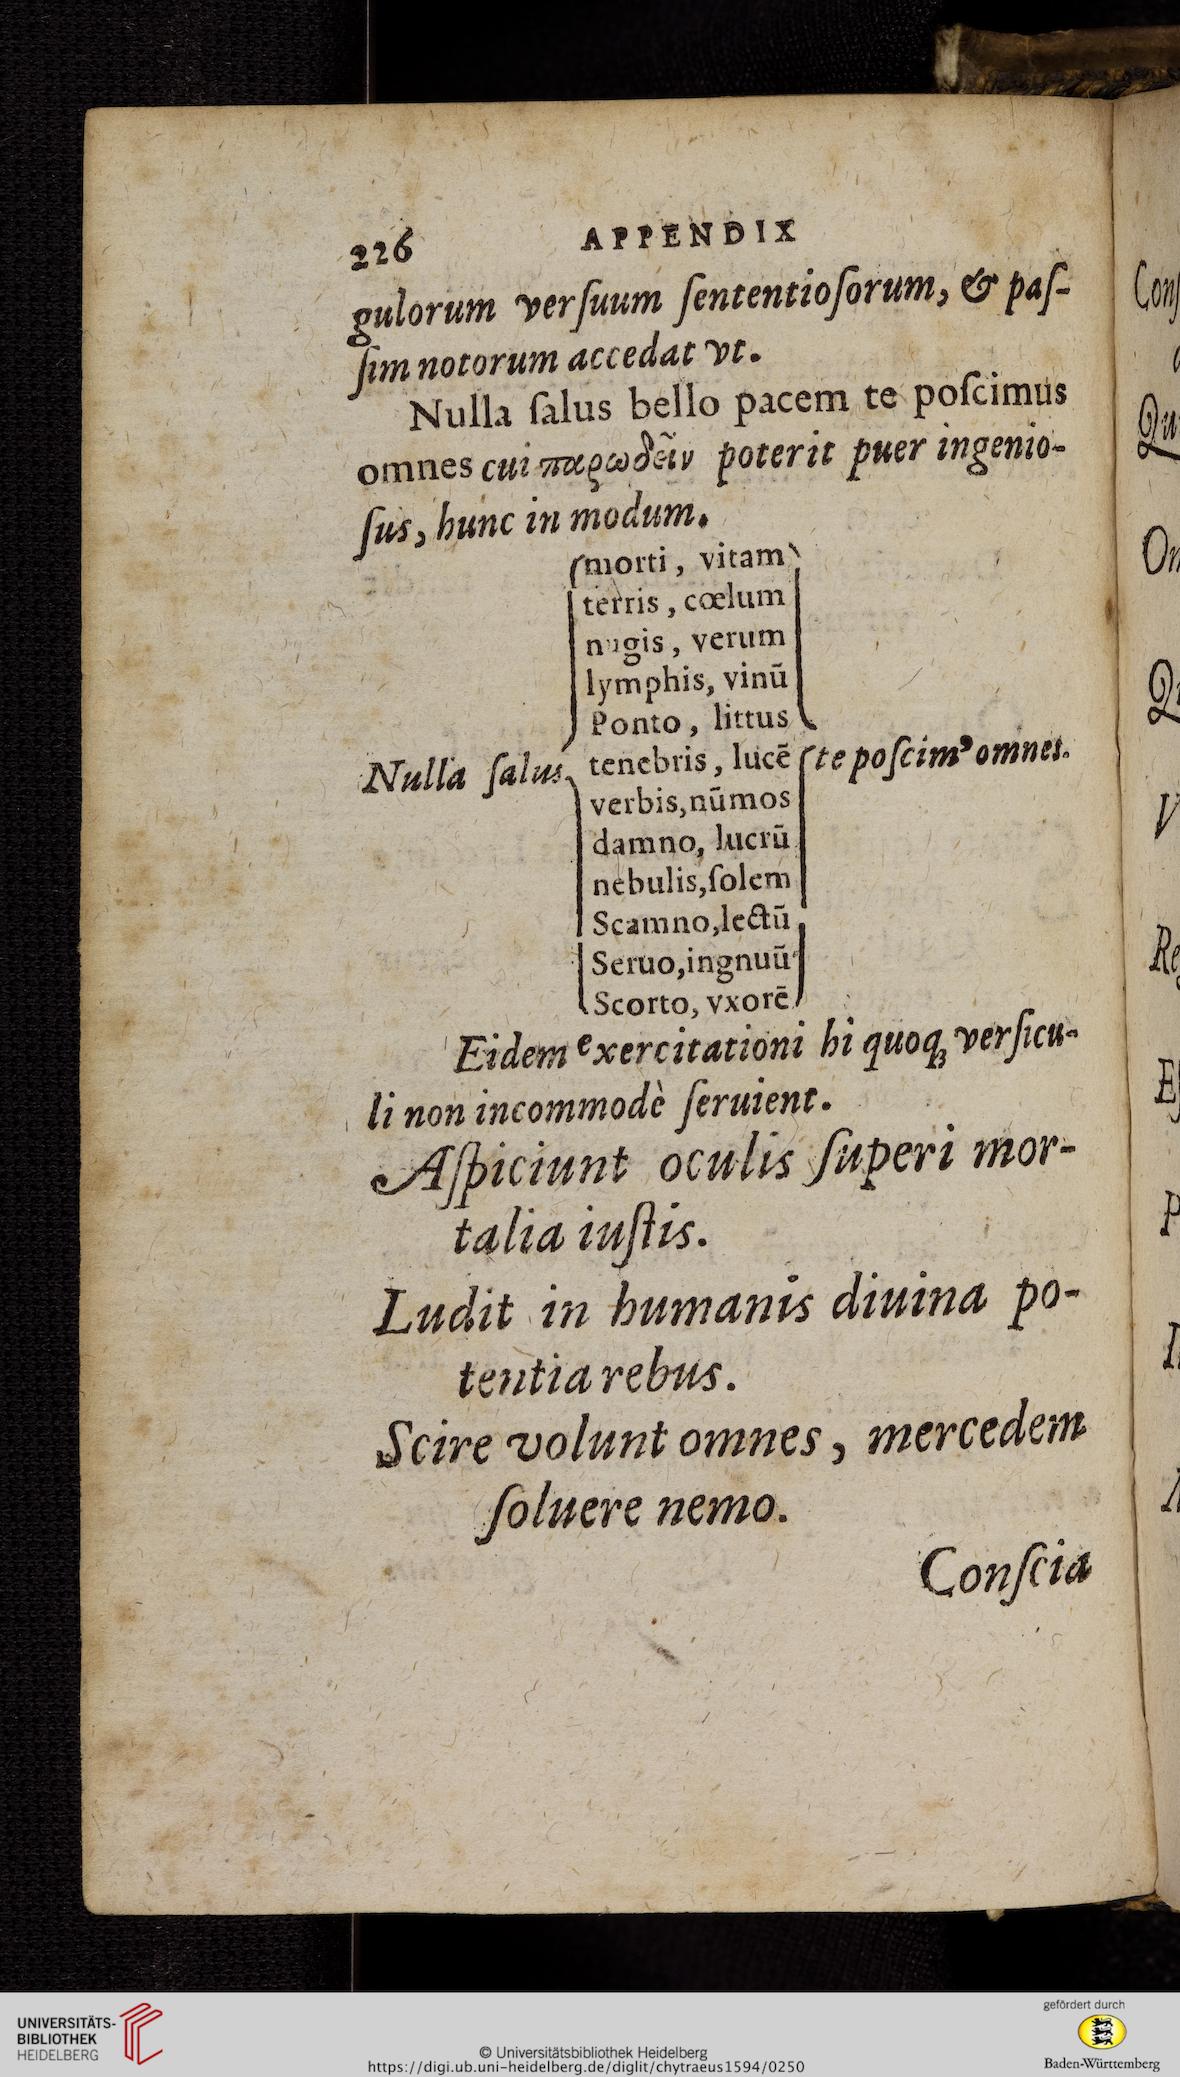 226 APPENDIX
gulorum verſuum ſententioſorum, & paſ-
ſim notorum accedat vt.
Nulla ſalus bello pacem te poſcimus
omnes cui παρωδεῖν poterit puer ingenio-
ſus, hunc in modum.
morti, vitam
terris, cœlum
nugis, verum
lymphis, vinū
Ponto, littus
Nulla ſalus tenebris, lucē te poſcimꝰ omnes.
verbis, nūmos
damno, lucrū
nebulis, ſolem
Scamno, lectū
Seruo, ingnuū
Scorto, vxorē
Eidem exercitationi hi quoqꝫ verſicu-
li non incommodè ſeruient.
Aſpiciunt oculis ſuperi mor-
talia iuſtis.
Ludit in humanis diuina po-
tentia rebus.
Scire volunt omnes, mercedem
ſoluere nemo.
Conſcia
UNIVERSITÄTS-
BIBLIOTHEK
HEIDELBERG
© Universitätsbibliothek Heidelberg
https://digi.ub.uni-heidelberg.de/diglit/chytraeus1594/0250
gefördert durch
Baden-Württemberg